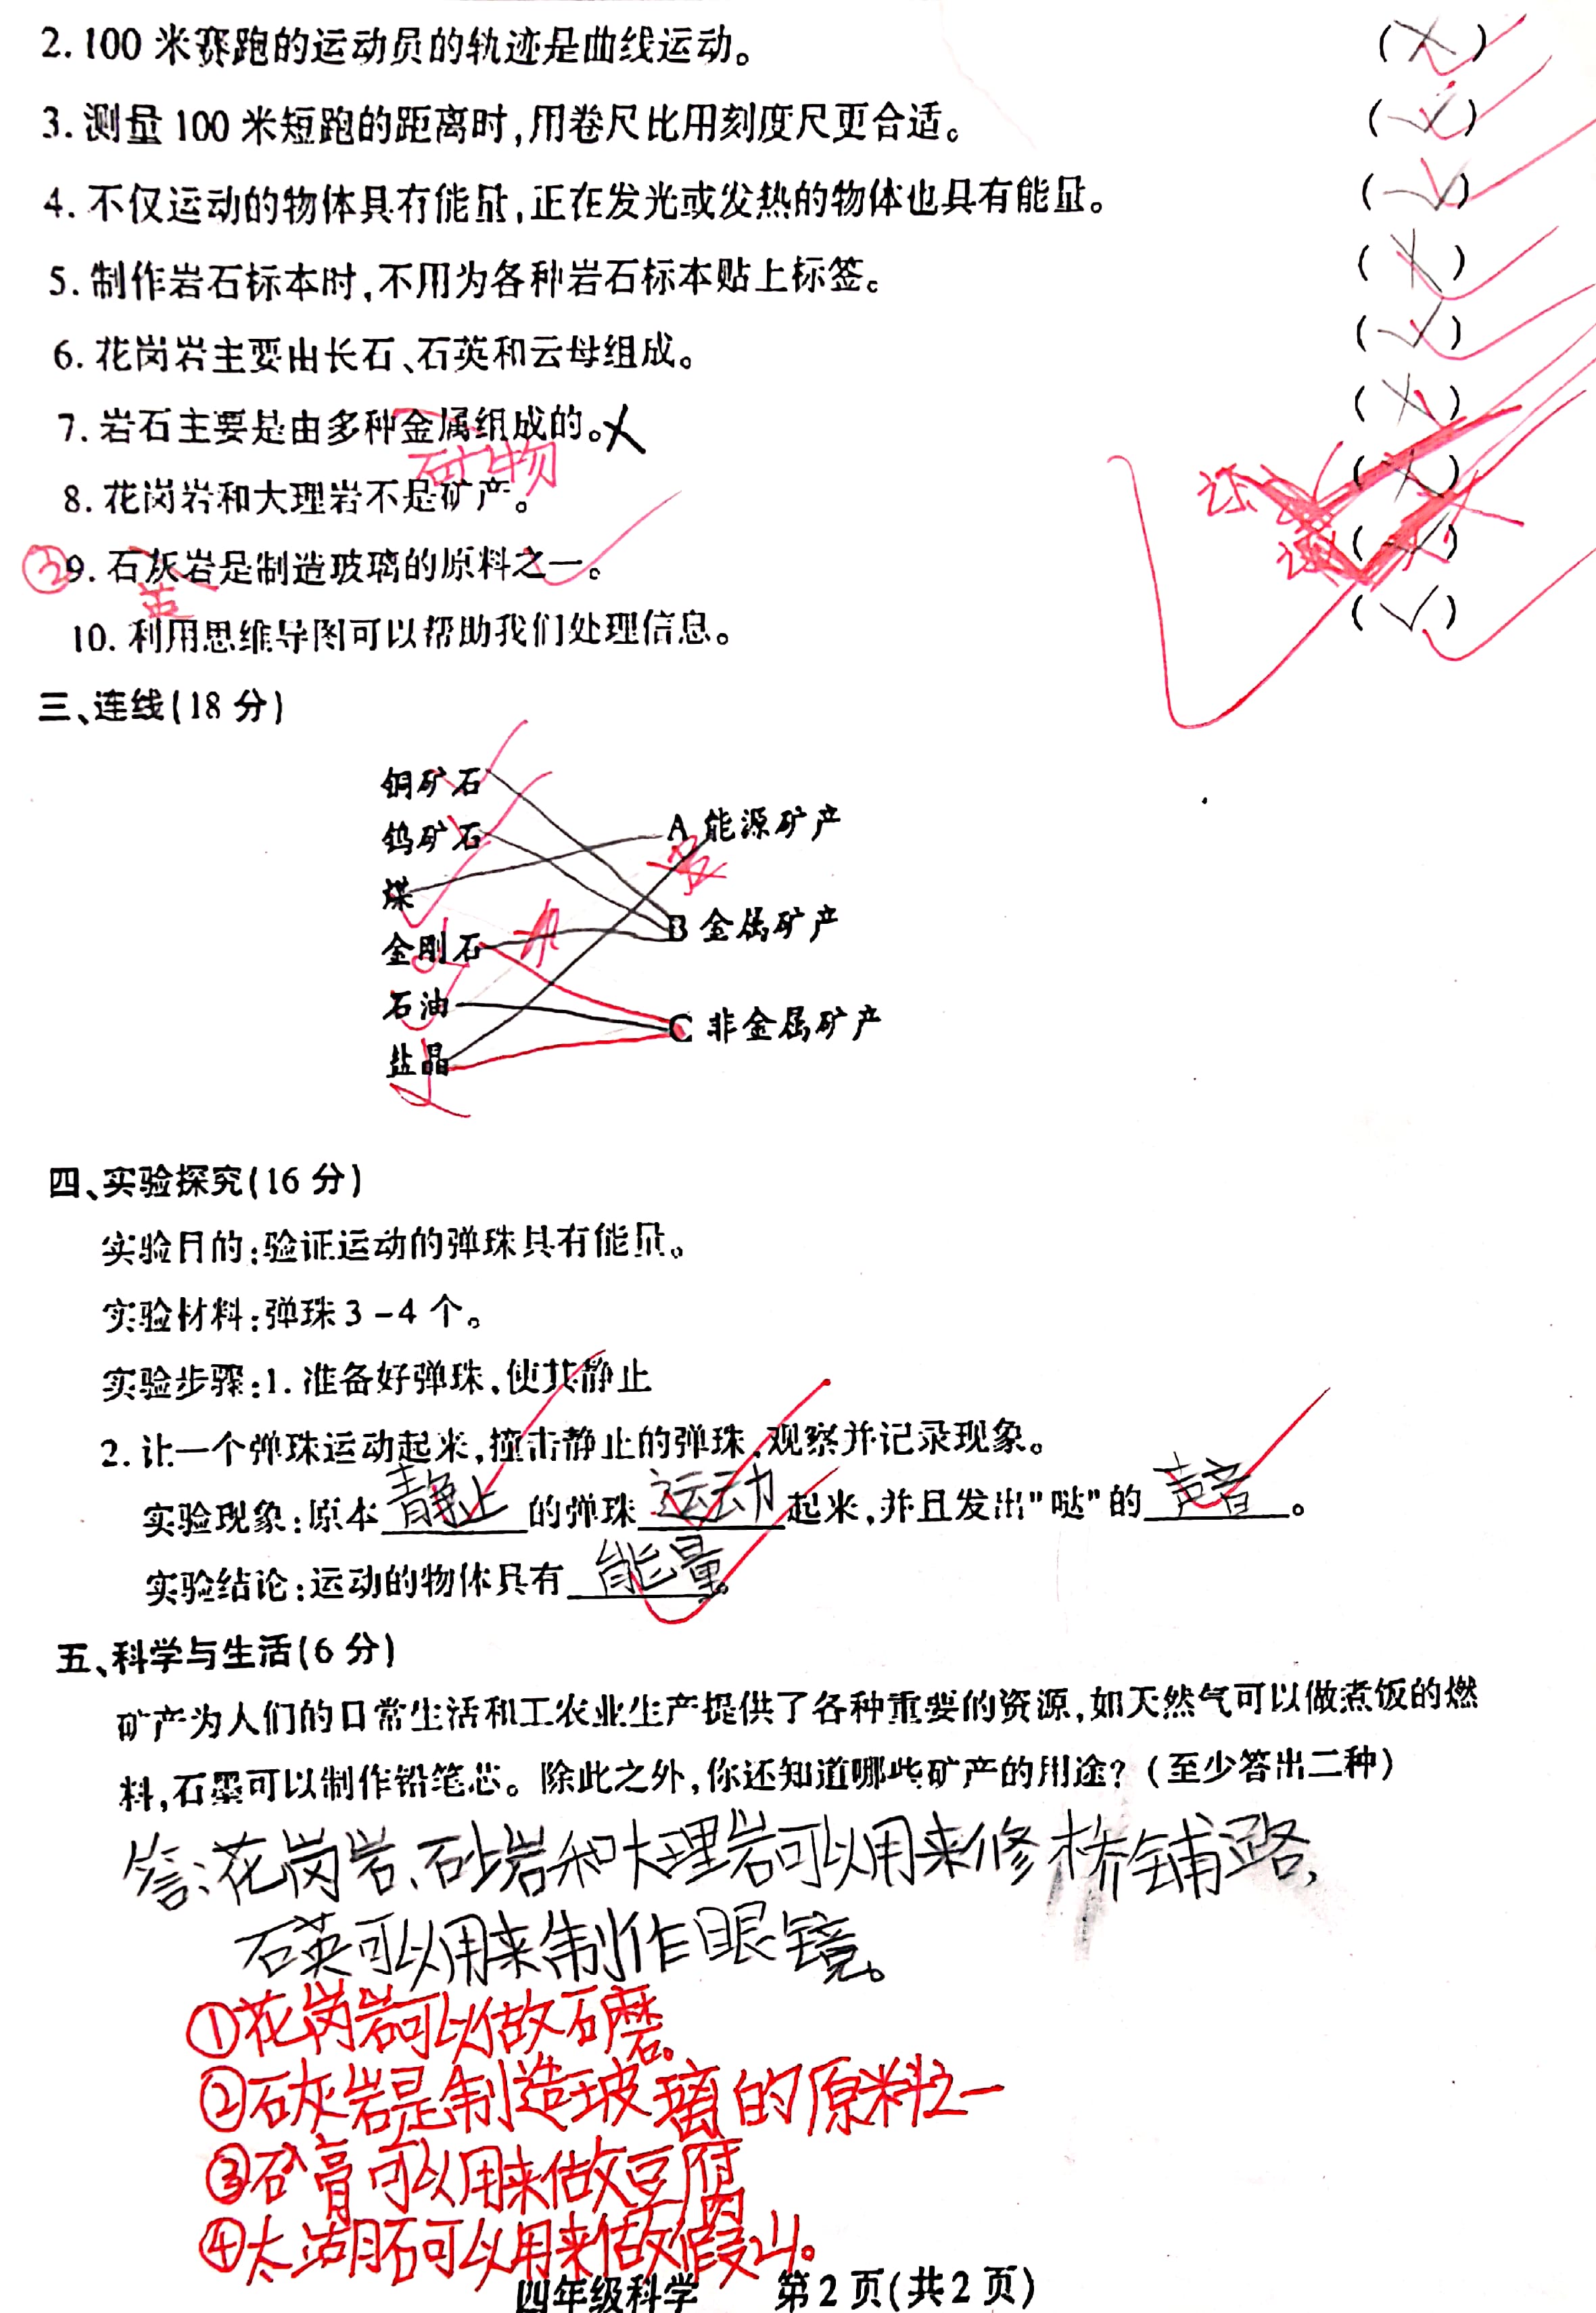 2. 100 米赛跑的运动员的轨迹是曲线运动。 (×)
3. 测量 100 米短跑的距离时,用卷尺比用刻度尺更合适。 (✓)
4. 不仅运动的物体具有能量,正在发光或发热的物体也具有能量。 (✓)
5. 制作岩石标本时,不用为各种岩石标本贴上标签。 (×)
6. 花岗岩主要由长石、石英和云母组成。 (✓)
7. 岩石主要是由多种金属组成的。× (×)
矿物
8. 花岗岩和大理岩不是矿产。 (×)
③ 9. 石灰岩是制造玻璃的原料之一。 (×)
英
10. 利用思维导图可以帮助我们处理信息。 (✓)
三、连线(18 分)
铜矿石
钨矿石
A 能源矿产
煤
金刚石
B 金属矿产
石油
C 非金属矿产
盐晶
四、实验探究(16 分)
实验目的:验证运动的弹珠具有能量。
实验材料:弹珠 3 -4 个。
实验步骤:1. 准备好弹珠,使其静止
2. 让一个弹珠运动起来,撞击静止的弹珠,观察并记录现象。
实验现象:原本 静止 的弹珠 运动 起来,并且发出"哒"的 声音 。
实验结论:运动的物体具有 能量 。
五、科学与生活(6 分)
矿产为人们的日常生活和工农业生产提供了各种重要的资源,如天然气可以做煮饭的燃
料,石墨可以制作铅笔芯。除此之外,你还知道哪些矿产的用途?(至少答出二种)
答:花岗岩、砂岩和大理岩可以用来修桥铺路,
石英可以用来制作眼镜。
①花岗岩可以做石磨。
②石灰岩是制造玻璃的原料之一
③石膏可以用来做豆腐
④太湖石可以用来做假山。
四年级科学 第 2 页(共 2 页)